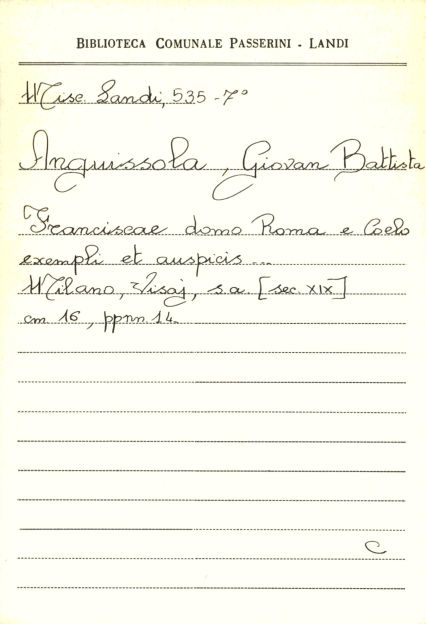 BIBLIOTECA COMUNALE PASSERINI - LANDI
Misc. Landi, 535 - 7°
Anguissola, Giovan Battista
Franciscae domo Roma e Coelo
exempli et auspicis ...
Milano, Visaj, s.a. [sec. XIX]
cm 16, ppnn. 14.
C